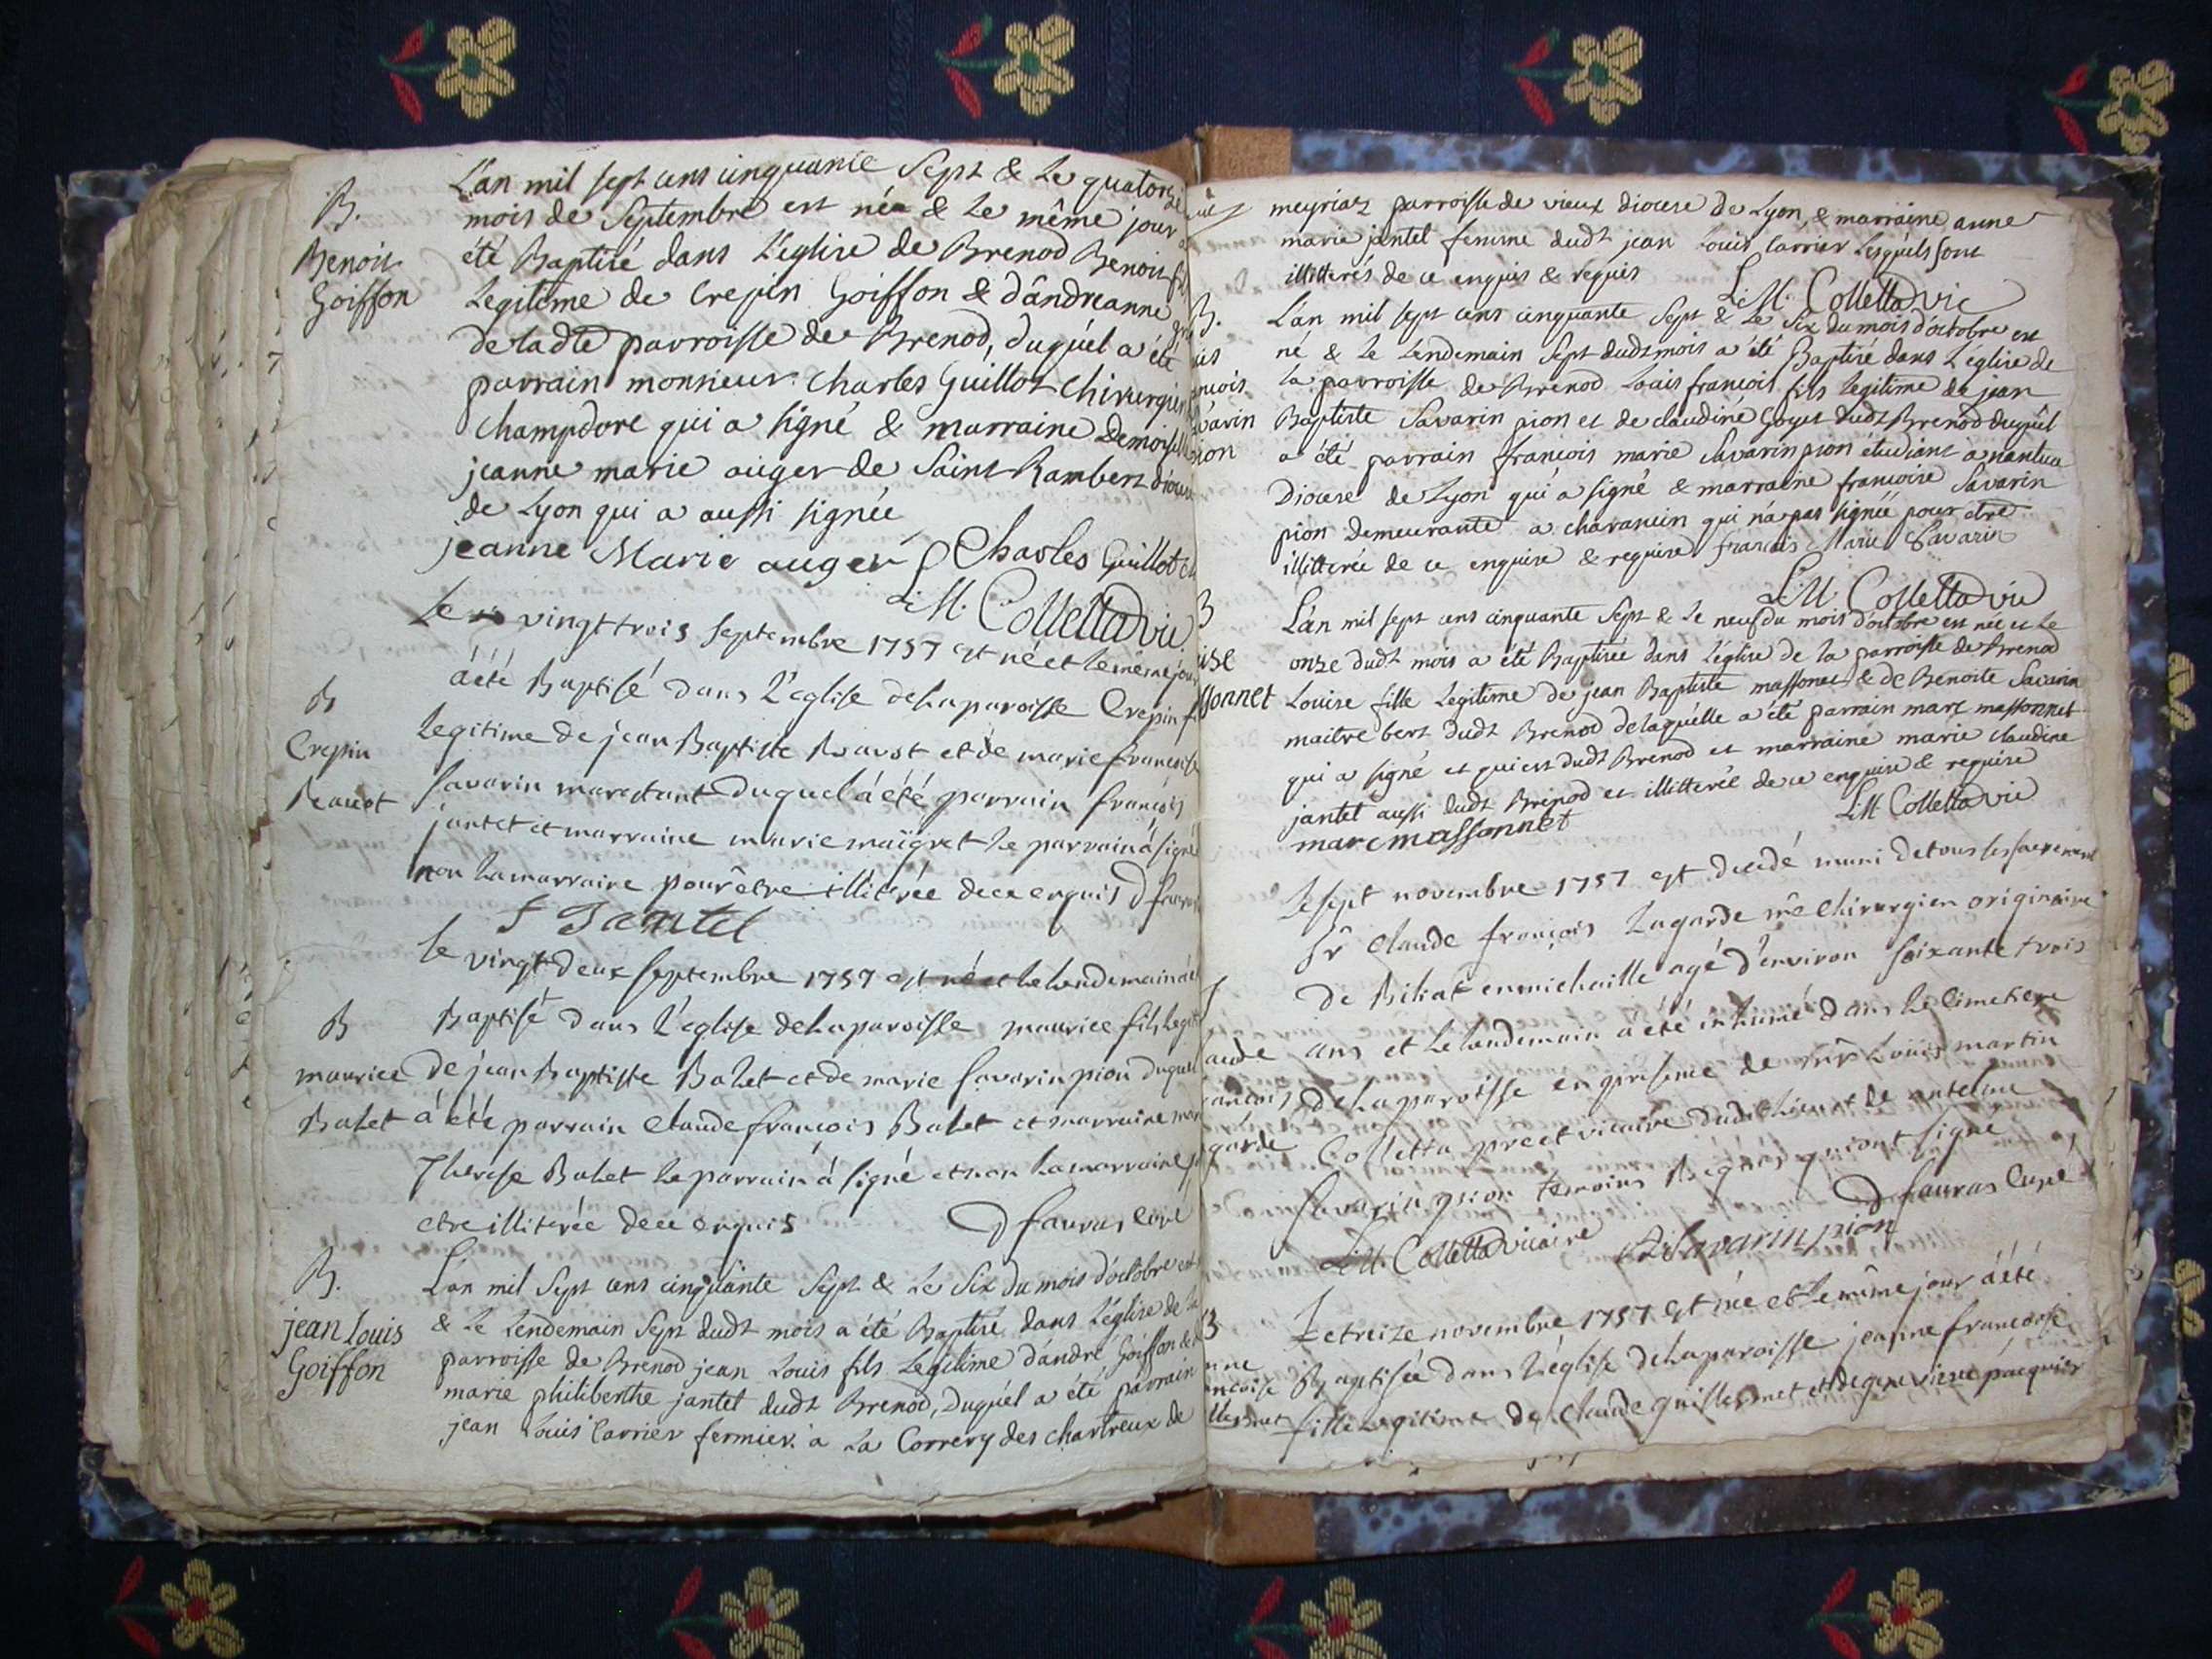 L'an mil sept cens cinquante Sept & Le quatorze
B.
mois de Septembre est né & Le même jour a
Benoit
été Baptisé dans L'église de Brenod Benoit fils
Goiffon
Legitime de Crepin Goiffon & d'andreanne
de ladte parroisse de Brenod, duquel a été
parrain monsieur Charles Guillot Chirurgien
Champdore qui a signé & marraine Demoiselle
jeanne marie auger de Saint Rambert diocese
de Lyon qui a aussi signée
jeanne Marie auger Charles Guillot
L:M. Colletta vic
Le vingt trois septembre 1757 est né et le même jour
á été Baptisé dans L'eglise de la paroisse Crepin fils
B
Crepin
Ravot
Legitime de jean Baptiste Ravot et de marie françoise
Savarin marchant duquel á été parrain françois
jantet et marraine marie maigret le parrain á signé
non la marraine pour être illitérée de ce enquis D fauras
f Jantel
le vingt deux septembre 1757 est né et le lendemain á été
B
Baptisé dans L'eglise de la paroisse maurice fils legit
maurice
de jean Baptiste Balet et de marie Savarin pion duquel
Balet
á été parrain Claude françois Balet et marraine
Therese Balet le parrain á signé et non la marraine p
etre illitérée de ce enquis D fauras curé
B.
L'an mil Sept cens cinquante Sept & Le Six du mois d'octobre est
jean Louis
& Le Lendemain Sept dudt mois a été Baptisé dans L'église de la
Goiffon
parroisse de Brenod jean Louis fils Legitime d'andré Goiffon & de
marie philiberthe jantel dudt Brenod, duquel a été parrain
jean Louis Carrier fermier à La Correry des chartreux de
meyriaz parroisse de vieux diocese de Lyon, & marraine anne
marie jantel femme dudt jean Louis Carrier Lesquels sont
illitterés de ce enquis & requis
L:M. Colletta vic
B.
L'an mil sept cens cinquante Sept & Le Six du mois d'octobre est
né & le Lendemain Sept dudt mois a été Baptisé dans L'église de
la parroisse de Brenod Louis françois fils legitime de jean
Baptiste Savarin pion et de claudine Goyet dudt Brenod duquel
a été parrain françois marie Savarin pion étudiant a nantua
Diocese de Lyon qui a signé & marraine françoise Savarin
pion Demeurante a charancin qui n'a pas signée pour etre
illitterée de ce enquise & requise françois Marie Savarin
L:M. Colletta vic
B
L'an mil sept cens cinquante Sept & Le neuf du mois d'octobre est née et Le
onze dudt mois a été Baptisée dans L'église de la parroisse de Brenod
Louise fille Legitime de jean Baptiste massonet & de Benoite Savarin
maitre bert dudt Brenod de laquelle a été parrain marc massonnet
qui a signé et qui est dudt Brenod et marraine marie claudine
jantet aussi dudt Brenod et illitterée de ce enquise & requise
marc massonnet L:M Colletta vic
le sept novembre 1757 est decedé muni de tous ses sacrements
Sr Claude françois Lagarde me Chirurgien originaire
de Biliat en michaille agé d'environ soixante trois
ans et le landemain á été inhumé dans le Cimetiere
de la paroisse en presence de Louis martin
Colletta pre et vicaire dudit lieu et de antelme
Savarin pion témoins Requis qui ont signé
D fauras Curé
L:M. Colletta vicaire Savarin pion
B
Le treize novembre 1757 est née et le même jour á été
Baptisée dans L'église de la paroisse jeanne françoise
fille Legitime de Claude Guillermet et de genevieve pacquier